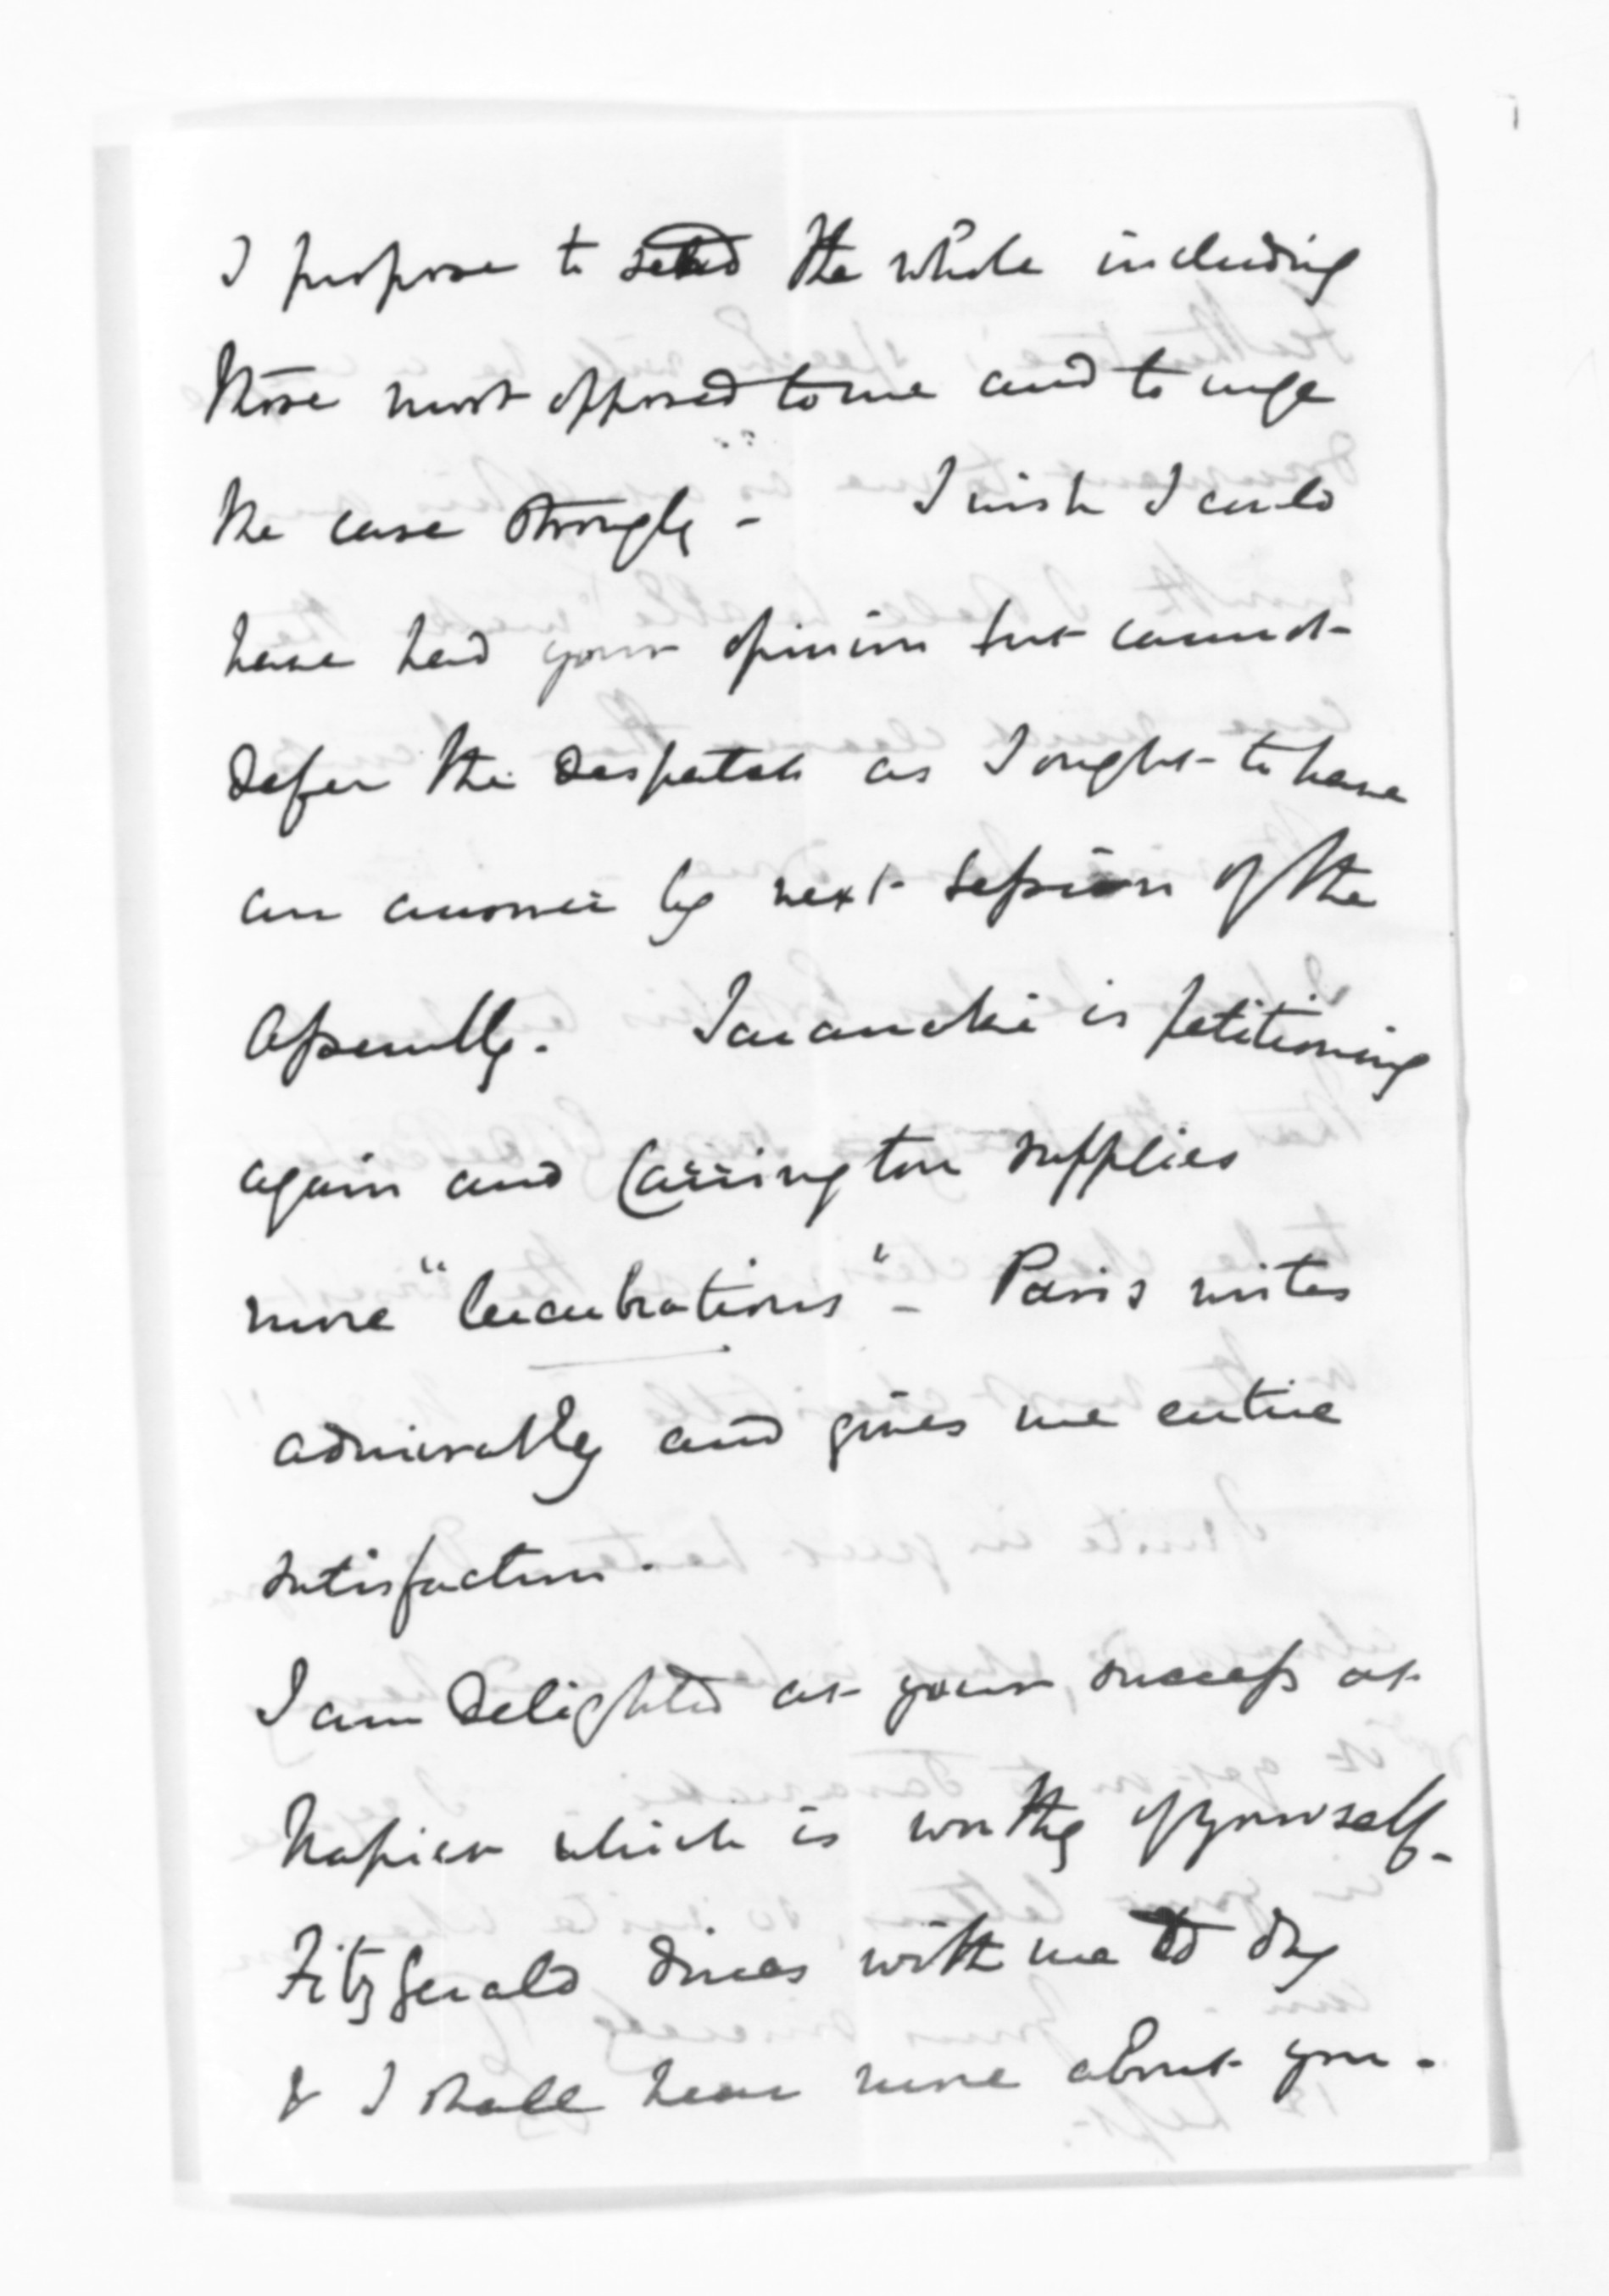 I propose to send the whole including
those most opposed to me and to urge
the case strongly - I wish I could
have had your opinion but cannot
defer the despatch as I ought to have
an answer by next session of the
Assembly. Taranaki is petitioning
again and Carrington supplies
more "lucubrations" - Paris writes
admirably and gives me entire
satisfaction.
I am delighted at your success at
Napier which is worthy of yourself -
Fitzgerald dines with me to day
& I shall hear more about you.